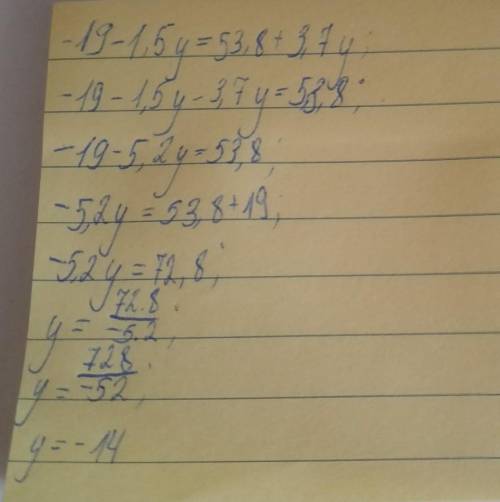 -19-1,5y=53,8+3,7y;
-19-1,5y-3,7y=53,8;
-19-5,2y=53,8;
-5,2y=53,8+19;
-5,2y=72,8;
y=72.8/-5.2;
y=728/-52;
y=-14